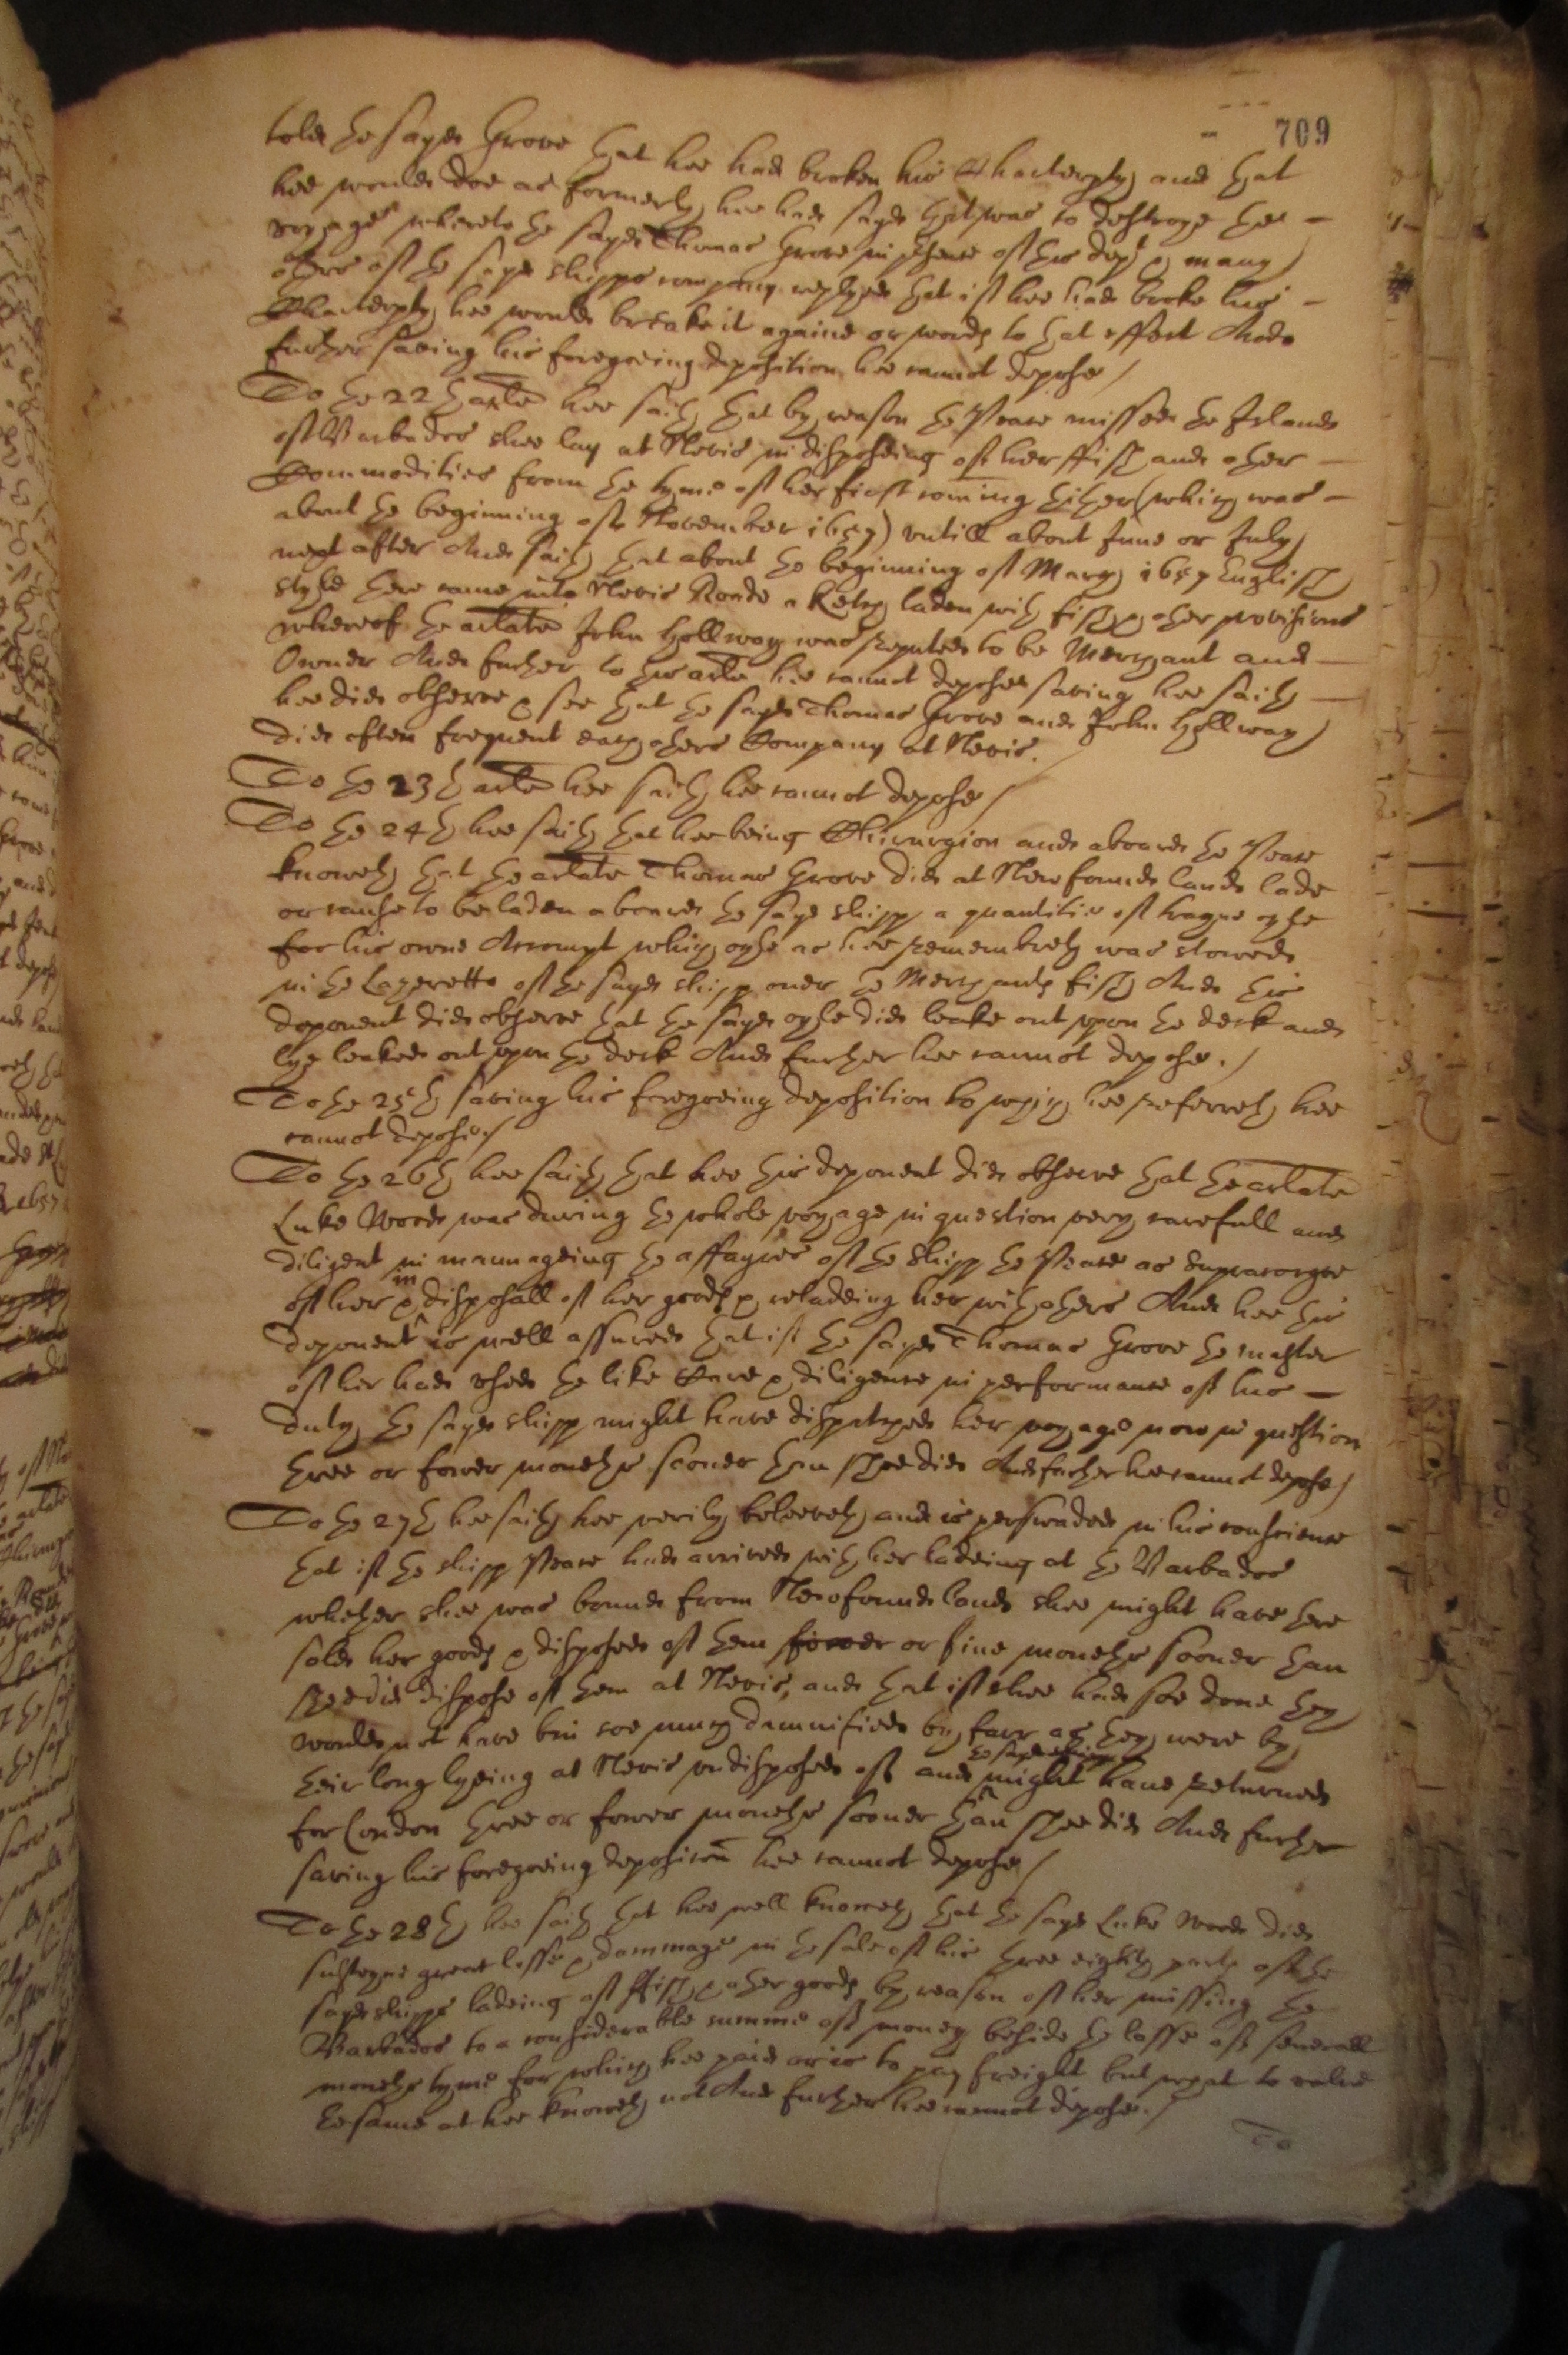 709
told the sayd Grove that hee had broken his Charterpty and that
hee would doe as formerly hee had sayd that was to destroye the
voyage whereto the sayd Thomas Grove in presence of this dept & many
others of the sayd shipps company replyed that if hee had broke his
Charterpty hee would breake it againe or words to that effect And
further saving his foregoeing deposition hee cannot depose
To the 22th arlte hee saith that by reason the Peace missed the Island
of Barbados shee lay at Nevis in disposeing of her ffish and other
Commodities from the tyme of her first coming thither (which was
about the beginning of November 1657) untill about June or July
next after And saith that about the beginning of March 1657 English
style there came into Nevis Roade a Ketch laden with fish & other provisions
whereof the arlate John Hollway was reputed to be Merchant and
Owner And further to this arlte hee cannot depose saving hee saith
hee did observe & see that the sayd Thomas Grove and John Hollway
did often frequent each others Company at Nevis.
To the 23th arlte hee saith hee cannot depose
To the 24th hee saith that hee being Chirurgion and aboard the Peace
knoweth that the arlate Thomas Grove did at Newfoundeland lade
or cause to be laden aboard the sayd shipp a quantitie of trayne oyle
for his owne Accompt which oyle as hee remembreth was stowed
in the Lazeretto of the sayd shipp over the Merchants fish And this
deponent did observe that the sayd oyle did leake out upon the deck and
lye leaked out upon the deck And further hee cannot depose.
To the 25th saving his foregoeing deposition to which hee referreth hee
cannot depose
To the 26th hee saith that hee this deponent did observe that the arlate
Luke Wood was during the whole voyage in question very carefull and
diligent in mannageing the affayres of the shipp the Peace as Supracargoe
of her & in disposall of her goods & reladeing her with others And hee this
deponent is well assured that if the sayd Thomas Grove the master
of her had used the like Care & diligence in performance of his
duty the sayd shipp might have dispatched her voyage now in question
three or fower moneths sooner then shee did And further hee cannot depose
To the 27th hee saith hee verily beleeveth and is perswaded in his conscience
that if the shipp Peace had arrived with her ladeing at the Barbados
whether shee was bound from Newfoundeland shee might have there
sold her goods & disposed of them fower or five moneths sooner than
shee did dispose of them at Nevis, and that if shee had soe done they
would not have bin soe much damnified by farr as they were by
their long lyeing at Nevis undisposed of and the sayd shipp might have returned
for London three or fower moneths sooner than shee did And further
saving his foregoeing deposicon hee cannot depose
To the 28th hee saith that hee well knoweth that the sayd Luke Wood did
susteyne great losse & dammage in the sale of his three eighth parts of the
sayd shipps ladeing of ffish & other goods by reason of her missing the
Barbados to a considerable summe of money beside the losse of severall
moneths tyme for which hee paid or is to pay freight but what to value
the same at hee knoweth not And further hee cannot depose.
To